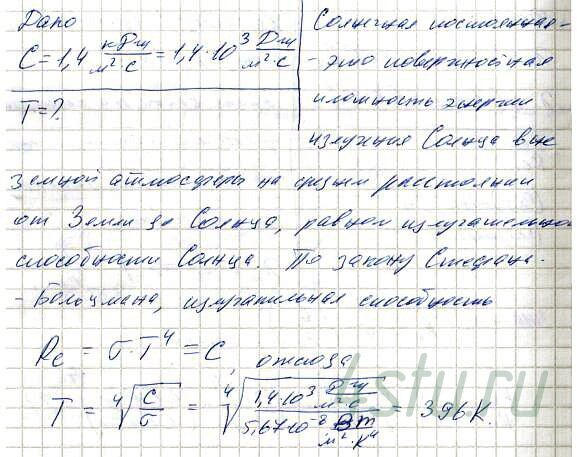 Дано
C = 1,4 кДж/м²·с = 1,4·10³ Дж/м²·с
T = ?
Солнечная постоянная -
- это поверхностная
плотность энергии
излучения Солнца вне
земной атмосферы на среднем расстоянии
от Земли до Солнца, равном излучательной
способности Солнца. По закону Стефана-
- Больцмана, излучательная способность
Rc = σ·T⁴ = C, отсюда
T = ⁴√(C/σ) = ⁴√(1,4·10³ Дж/м²·с / 5,67·10⁻⁸ Вт/м²·К⁴) = 396 К.
4stu.ru